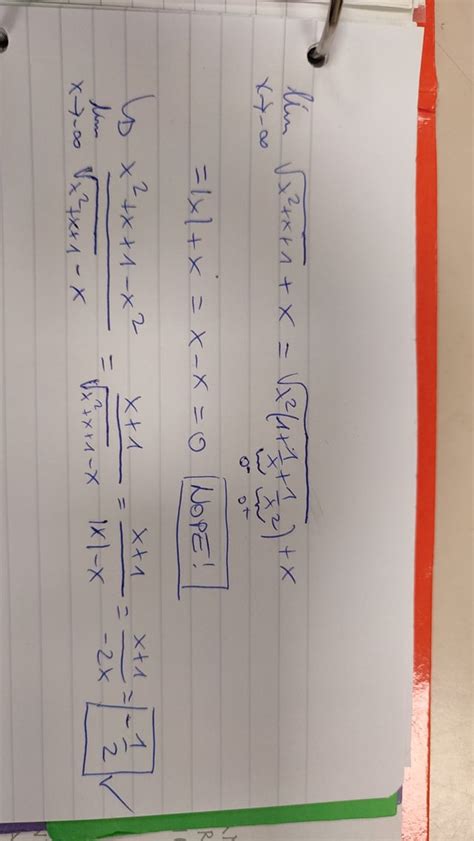 lim x→-∞ √(x²+x+1) + x = √(x²(1+1/x+1/x²)) + x
0⁻ 0⁺
= |x| + x = x - x = 0 NOPE!
↳ lim x→-∞ (x²+x+1-x²)/(√(x²+x+1) - x) = (x+1)/(√(x²+x+1) - x) = (x+1)/(|x|-x) = (x+1)/(-2x) = -1/2 ✓